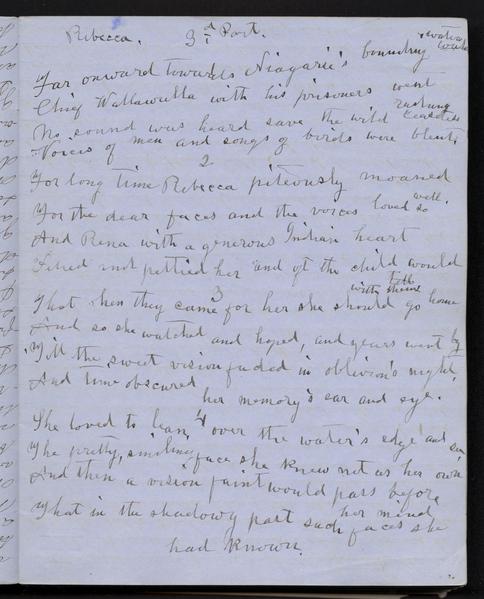 Rebecca. 3rd Part.
Far onward towards Niagarie's bounding water
Chief Wallawulla with his prisoners went
No sound was heard save the wild rushing
Voices of men and songs of birds were blent,
2
For long time Rebecca piteously moaned
For the dear faces and the voices loved so well.
And Rena with a generous Indian heart
and pettied her and yt the child would tell
3
That when they came for her she should go home with them
And so she watched and hoped, and years went by
Till the sweet vision faded in oblivion's night,
And Time obscured her memory's ear and eye.
4
She loved to lean over the water's edge and see
The pretty, smiling face she knew not as her own
And then a vision faint would pass before her mind
That in the shadowy past such faces she
had known.